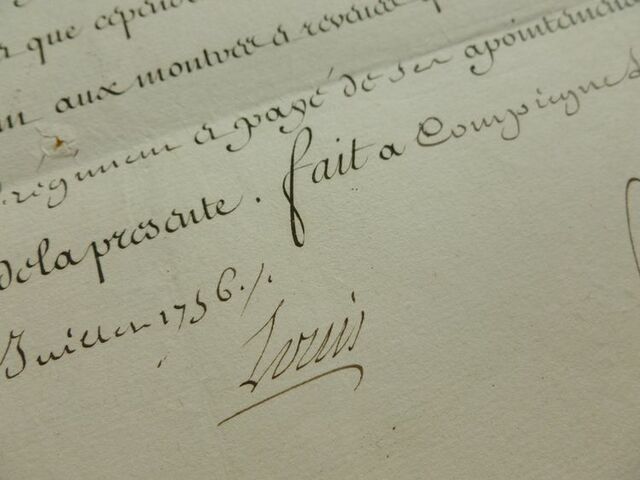 que cependant
aux montres et reveües q
regiment et payé de ses apointemens
de la presente. fait a Compiegne L
Juillet 1756./.
Louis